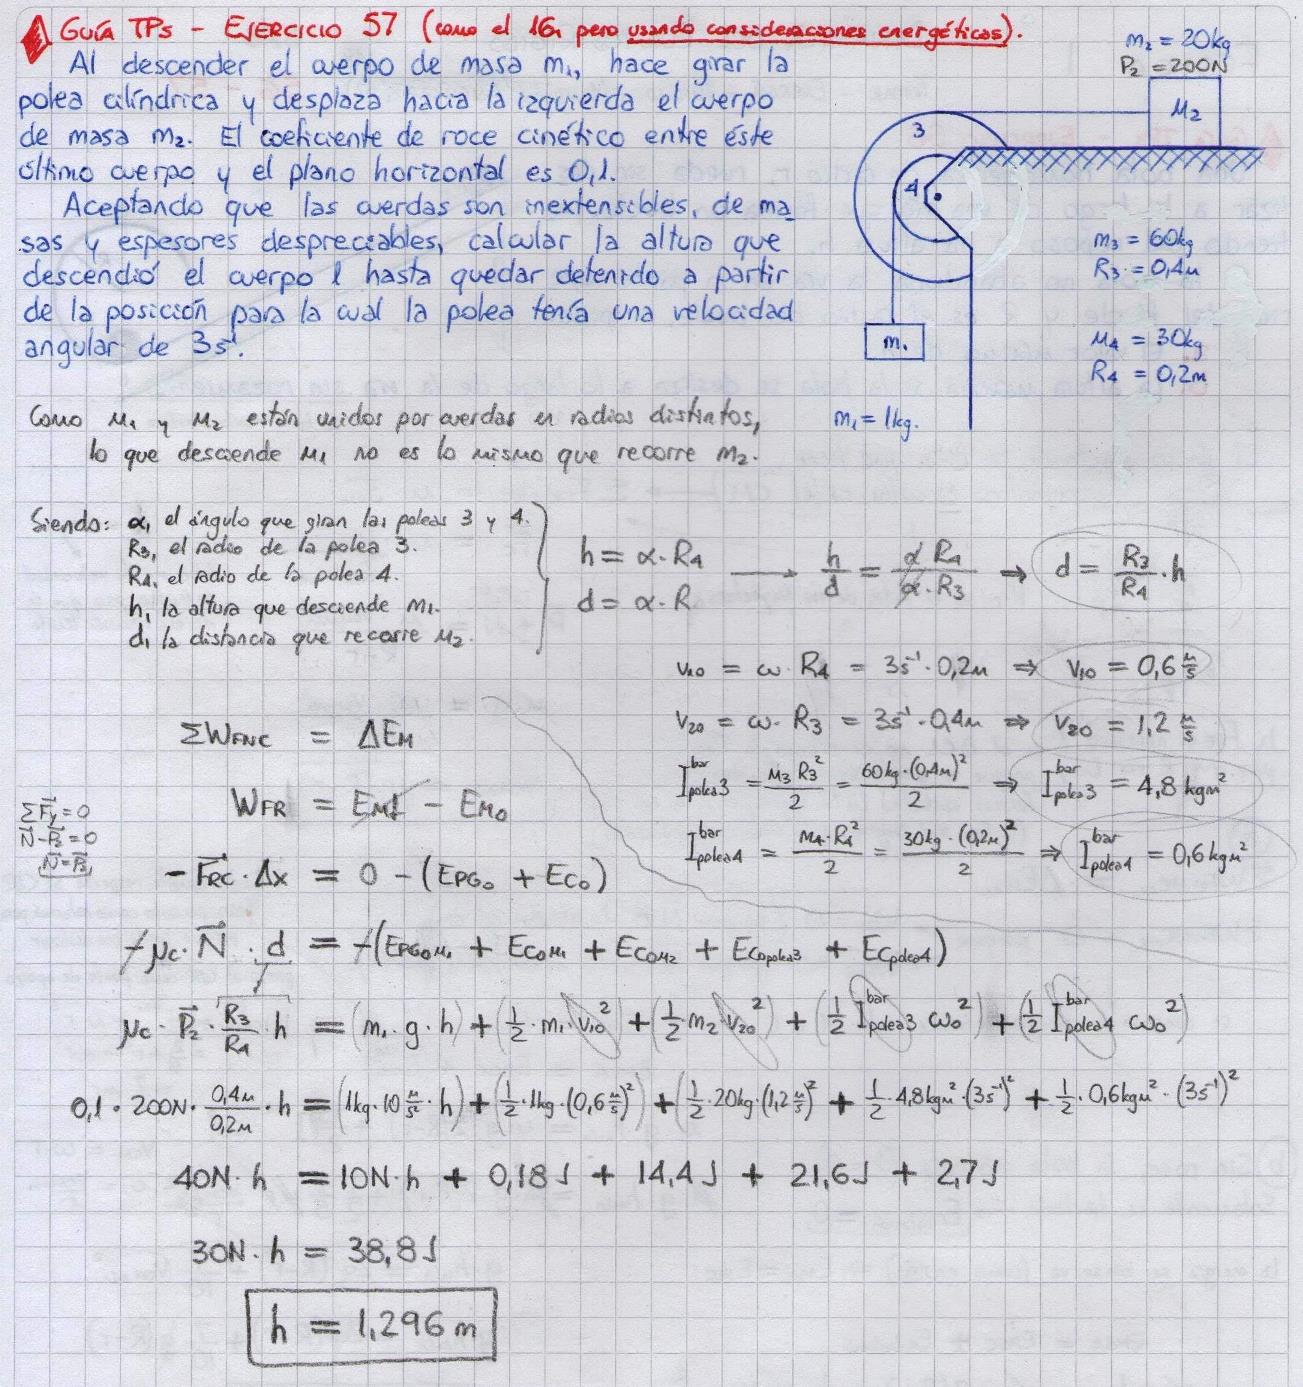 GUÍA TPs - EJERCICIO 57 (como el 16, pero usando consideraciones energéticas).
Al descender el cuerpo de masa m₁, hace girar la
polea cilíndrica y desplaza hacia la izquierda el cuerpo
de masa m₂. El coeficiente de roce cinético entre éste
último cuerpo y el plano horizontal es 0,1.
Aceptando que las cuerdas son inextensibles, de ma
sas y espesores despreciables, calcular la altura que
descendió el cuerpo 1 hasta quedar detenido a partir
de la posición para la cual la polea tenía una velocidad
angular de 3s⁻¹.
m₂ = 20kg
P₂ = 200N
M₂
3
4
m₃ = 60kg
R₃ = 0,4m
m₁
M₄ = 30kg
R₄ = 0,2m
m₁ = 1kg.
Como M₁ y M₂ están unidos por cuerdas en radios distintos,
lo que desciende M₁ no es lo mismo que recorre M₂.
Siendo: α, el ángulo que giran las poleas 3 y 4.
R₃, el radio de la polea 3.
R₄, el radio de la polea 4.
h, la altura que desciende M₁.
d, la distancia que recorre M₂.
h = α · R₄
d = α · R
h/d = α R₄ / α · R₃ ⇒ d = R₃/R₄ · h
v₁₀ = ω · R₄ = 3s⁻¹ · 0,2m ⇒ v₁₀ = 0,6 m/s
v₂₀ = ω · R₃ = 3s⁻¹ · 0,4m ⇒ v₂₀ = 1,2 m/s
I polea3 bar = M₃ R₃²/2 = 60kg · (0,4m)²/2 ⇒ I polea3 bar = 4,8 kgm²
I polea4 bar = M₄ · R₄²/2 = 30kg · (0,2m)²/2 ⇒ I polea4 bar = 0,6 kgm²
ΣWFNC = ΔEM
WFR = EMf - EM₀
ΣFy = 0
N - P₂ = 0
N = P₂
- FRC · Δx = 0 - (EPG₀ + EC₀)
- μc · N · d = -(EPG₀M₁ + EC₀M₁ + EC₀M₂ + EC₀polea3 + ECpolea4)
μc · P₂ · R₃/R₄ · h = (m₁ · g · h) + (1/2 · m₁ · v₁₀²) + (1/2 · m₂ · v₂₀²) + (1/2 I polea3 bar ω₀²) + (1/2 I polea4 bar ω₀²)
0,1 · 200N · 0,4m/0,2m · h = (1kg · 10 m/s² · h) + (1/2 · 1kg · (0,6 m/s)²) + (1/2 · 20kg · (1,2 m/s)² + 1/2 · 4,8kgm² · (3s⁻¹)² + 1/2 · 0,6kgm² · (3s⁻¹)²
40N · h = 10N · h + 0,18J + 14,4J + 21,6J + 2,7J
30N · h = 38,8J
h = 1,296 m